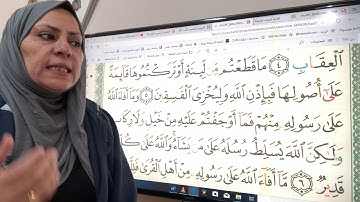 الْعِقَابِ ٤ مَا قَطَعْتُم مِّن لِّينَةٍ أَوْ تَرَكْتُمُوهَا قَائِمَةً
عَلَىٰ أُصُولِهَا فَبِإِذْنِ اللَّهِ وَلِيُخْزِيَ الْفَاسِقِينَ ٥ وَمَا أَفَاءَ اللَّهُ
عَلَىٰ رَسُولِهِ مِنْهُمْ فَمَا أَوْجَفْتُمْ عَلَيْهِ مِنْ خَيْلٍ وَلَا رِكَابٍ
وَلَٰكِنَّ اللَّهَ يُسَلِّطُ رُسُلَهُ عَلَىٰ مَن يَشَاءُ وَاللَّهُ عَلَىٰ
قَدِيرٌ ٦ مَّا أَفَاءَ اللَّهُ عَلَىٰ رَسُولِهِ مِنْ أَهْلِ الْقُرَىٰ